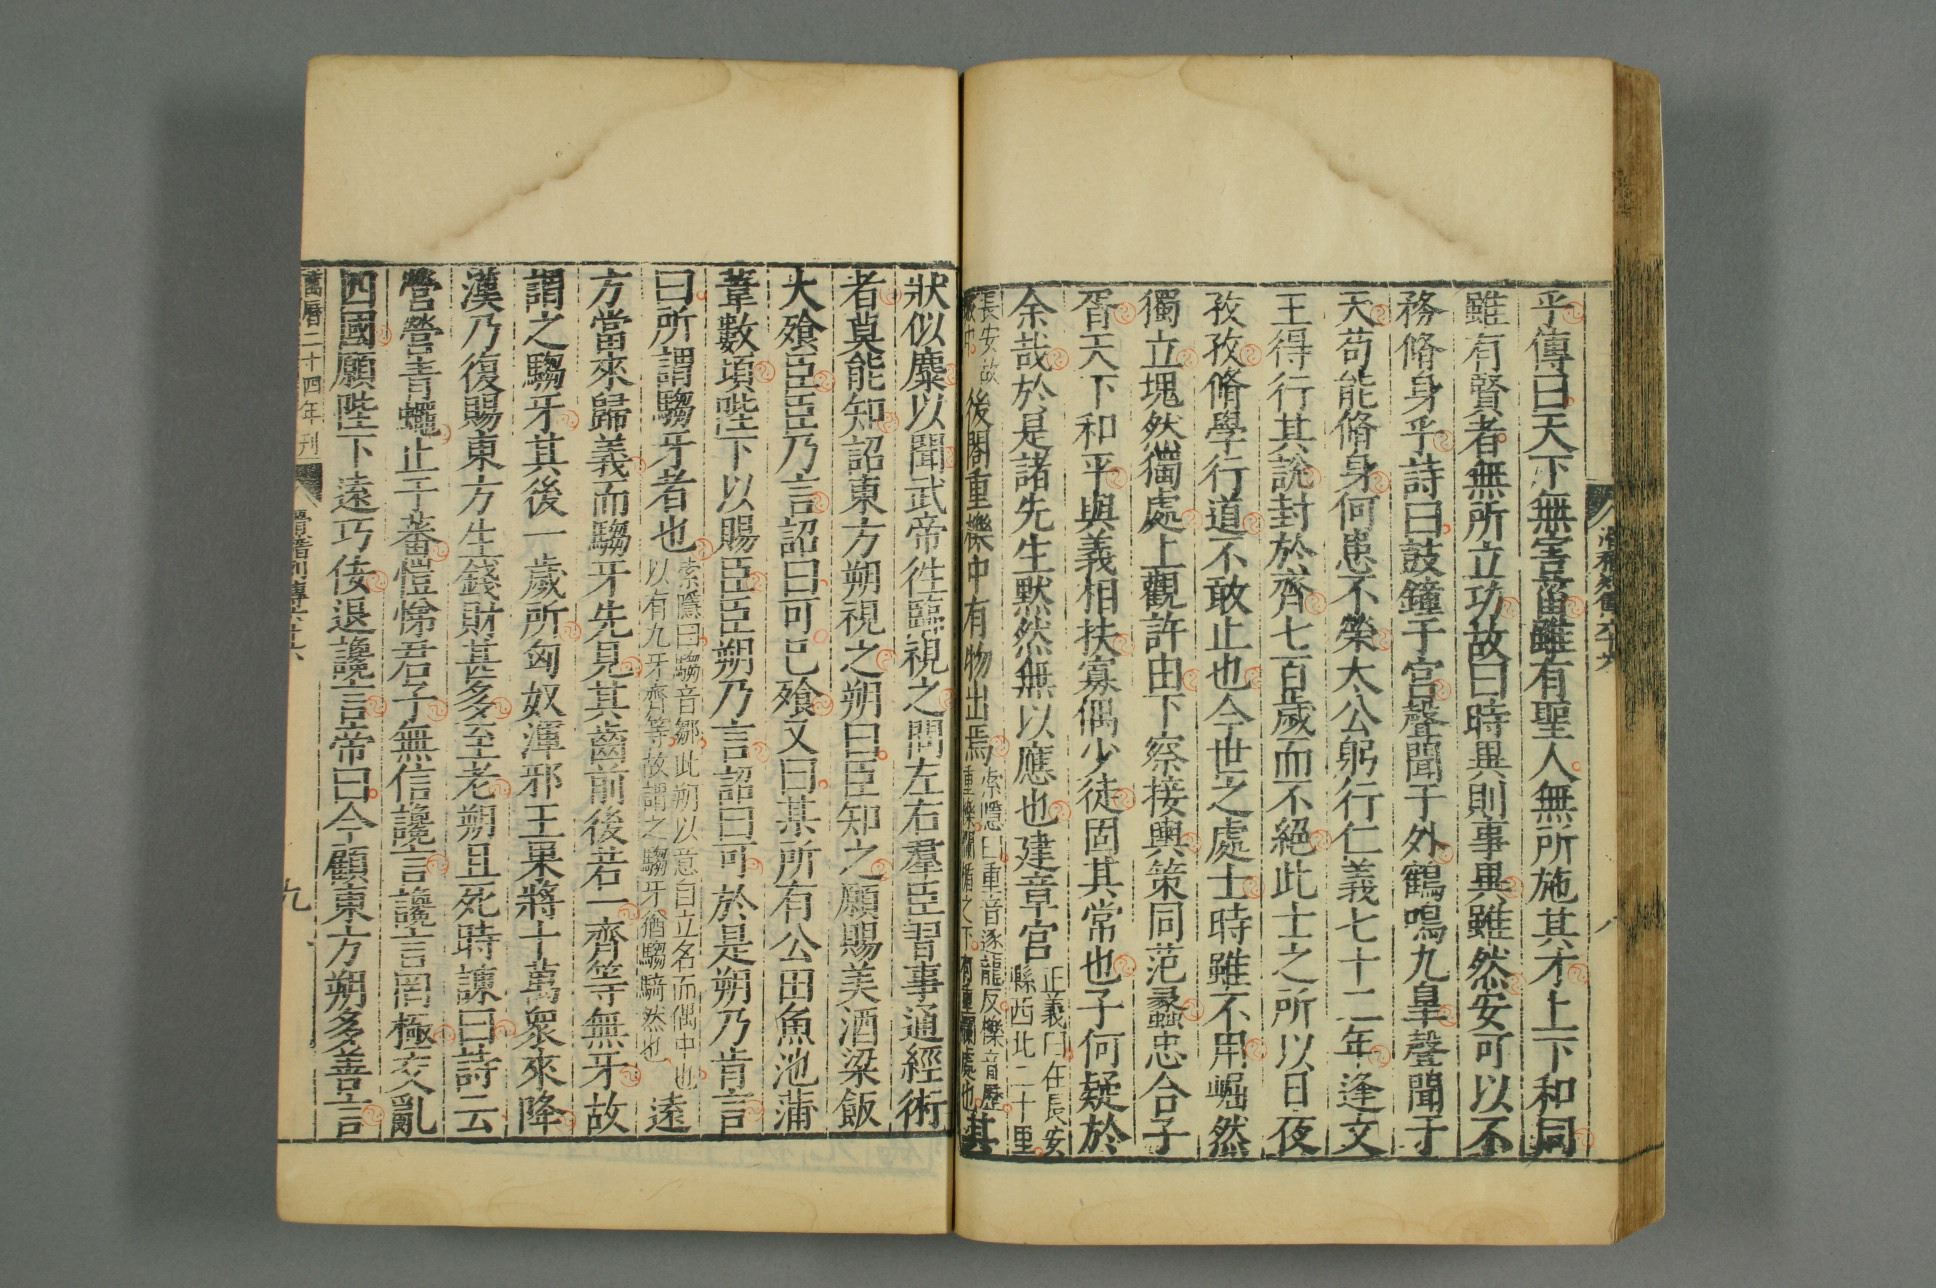 乎傳曰天下無害菑雖有聖人無所施其才上下和同
雖有賢者無所立功故曰時異則事異雖然安可以不
務脩身乎詩曰鼓鐘于宮聲聞于外鶴鳴九臯聲聞于
天苟能脩身何患不榮大公躬行仁義七十二年逢文
王得行其說封於齊七百歲而不絕此士之所以日夜
孜孜脩學行道不敢止也今世之處士時雖不用崛然
獨立塊然獨處上觀許由下察接輿策同范蠡忠合子
胥天下和平與義相扶寡偶少徒固其常也子何疑於
余哉於是諸先生默然無以應也建章宮
正義曰在長安
縣西北二十里
長安故
城中
後閣重櫟中有物出焉
索隱曰重音逐龍反櫟音歷
重櫟欄楯之下有重欄處也
其
狀似麋以聞武帝徃臨視之問左右羣臣習事通經術
者莫能知詔東方朔視之朔曰臣知之願賜美酒粱飯
大飱臣臣乃言詔曰可已飱又曰某所有公田魚池蒲
葦數頃陛下以賜臣臣朔乃言詔曰可於是朔乃肯言
曰所謂騶牙者也
索隱曰騶音鄒此朔以意自立名而偶中也
以有九牙齊等故謂之騶牙猶騶騎然也
遠
方當來歸義而騶牙先見其齒前後若一齊等無牙故
謂之騶牙其後一歲所匈奴渾邪王果將十萬衆來降
漢乃復賜東方生錢財甚多至老朔且死時諫曰詩云
營營青蠅止于蕃愷悌君子無信讒言讒言罔極交亂
四國願陛下遠巧佞退讒言帝曰今顧東方朔多善言
萬曆二十四年刊
滑稽列傳六十六
九